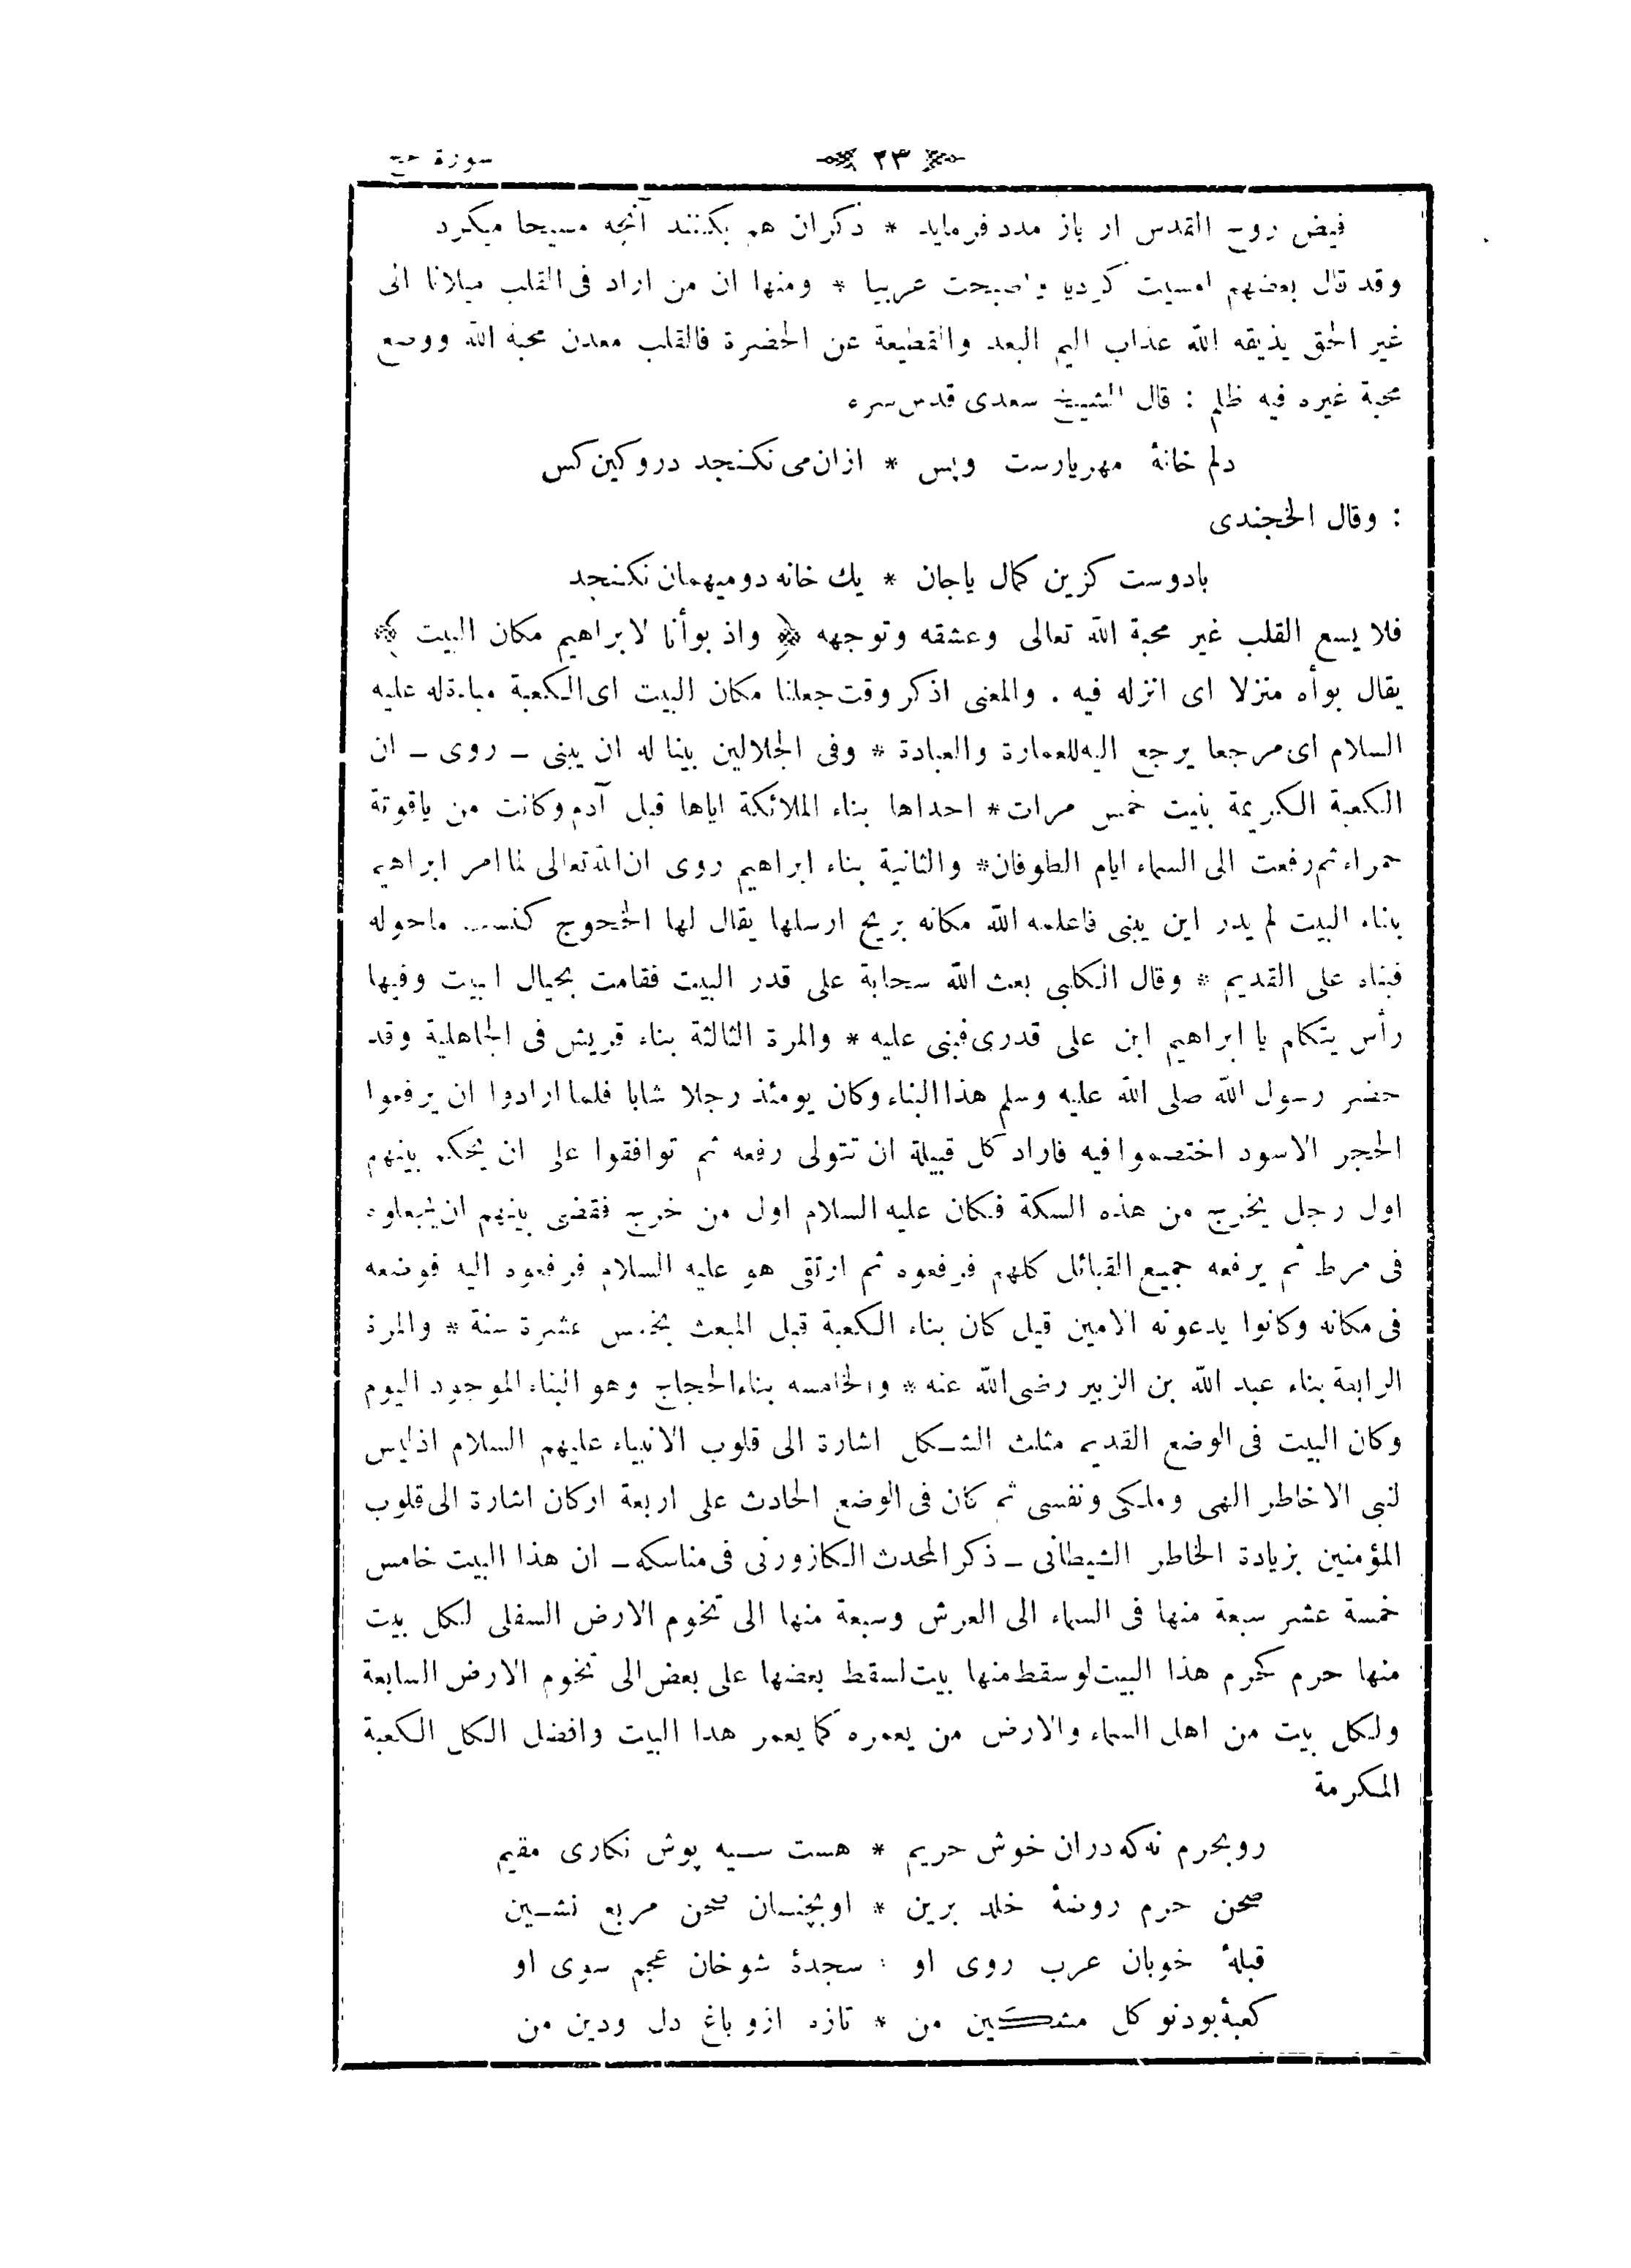 سورة حج
﴿ ٢٣ ﴾
فيض روح القدس ار باز مدد فرمايد * دكران هم بكنند آنچه مسيحا ميكرد
وقد قال بعضهم امسيت كرديا واصبحت عربيا * ومنها ان من اراد فى القلب ميلانا الى
غير الحق يذيقه الله عذاب اليم البعد والقطيعة عن الحضرة فالقلب معدن محبة الله ووضع
محبة غيره فيه ظلم : قال الشيخ سعدى قدس سره
دلم خانهٔ مهريارست وبس * ازان مى نكنجد دروكين كس
: وقال الخجندى
بادوست كزين كمال ياجان * يك خانه دوميهمان نكنجد
فلا يسع القلب غير محبة الله تعالى وعشقه وتوجهه ﴿ واذ بوأنا لابراهيم مكان البيت ﴾
يقال بوأه منزلا اى انزله فيه . والمعنى اذكر وقت جعلنا مكان البيت اى الكعبة مباءة له عليه
السلام اى مرجعا يرجع اليه للعمارة والعبادة * وفى الجلالين بينا له ان يبنى ـ روى ـ ان
الكعبة الكريمة بنيت خمس مرات * احداها بناء الملائكة اياها قبل آدم وكانت من ياقوتة
حمراء ثم رفعت الى السماء ايام الطوفان * والثانية بناء ابراهيم روى ان الله تعالى لما امر ابراهيم
بناء البيت لم يدر اين يبنى فاعلمه الله مكانه بريح ارسلها يقال لها الخجوج كنست ماحوله
فبناه على القديم * وقال الكلبى بعث الله سحابة على قدر البيت فقامت بحيال البيت وفيها
رأس يتكلم يا ابراهيم ابن على قدرى فبنى عليه * والمرة الثالثة بناء قريش فى الجاهلية وقد
حضر رسول الله صلى الله عليه وسلم هذا البناء وكان يومئذ رجلا شابا فلما ارادوا ان يرفعوا
الحجر الاسود اختصموا فيه فاراد كل قبيلة ان تتولى رفعه ثم توافقوا على ان يحكم بينهم
اول رجل يخرج من هذه السكة فكان عليه السلام اول من خرج فقضى بينهم ان يجعلوه
فى مرط ثم يرفعه جميع القبائل كلهم فرفعوه ثم ارتقى هو عليه السلام فرفعوه اليه فوضعه
فى مكانه وكانوا يدعونه الامين قيل كان بناء الكعبة قبل المبعث بخمس عشرة سنة * والمرة
الرابعة بناء عبد الله بن الزبير رضى الله عنه * والخامسة بناء الحجاج وهو البناء الموجود اليوم
وكان البيت فى الوضع القديم مثلث الشكل اشارة الى قلوب الانبياء عليهم السلام اذ ليس
لنبى الاخاطر الهى وملكى ونفسى ثم كان فى الوضع الحادث على اربعة اركان اشارة الى قلوب
المؤمنين بزيادة الخاطر الشيطانى ـ ذكر المحدث الكازورنى فى مناسكه ـ ان هذا البيت خامس
خمسة عشر سبعة منها فى السماء الى العرش وسبعة منها الى تخوم الارض السفلى لكل بيت
منها حرم كحرم هذا البيت لو سقط منها بيت لسقط بعضها على بعض الى تخوم الارض السابعة
ولكل بيت من اهل السماء والارض من يعمره كما يعمر هذا البيت وافضل الكل الكعبة
المكرمة
روبحرم نه كه دران خوش حريم * هست سيه پوش نكارى مقيم
صحن حرم روضهٔ خلد برين * اوبچنسان صحن مربع نشين
قبلهٔ خوبان عرب روى او : سجدهٔ شوخان عجم سوى او
كعبهٔ بودنو كل مشكين من * تازه ازو باغ دل ودين من